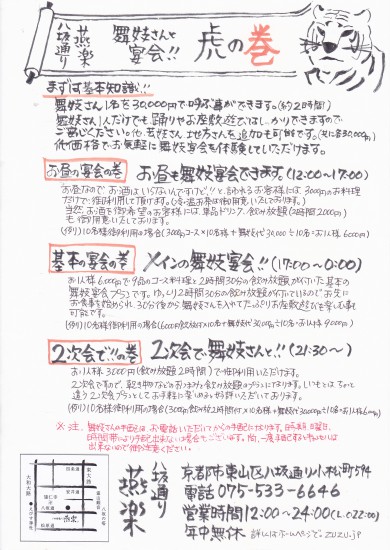 八坂通り 燕楽 舞妓さんと宴会!! 虎の巻
まずは基本知識!!
舞妓さん1名を30,000円で呼ぶ事ができます。(約2時間)
舞妓さん1人だけでも踊りやお座敷遊びはしっかりできますので
ご安心ください。他、芸妓さん、地方さんを追加も可能です。(共に各30,000円)
低価格でお気軽に舞妓宴会を体験していただけます。
お昼の宴会の巻 お昼も舞妓宴会できます。(12:00〜17:00)
お昼なので、お酒はいらないんですけど。と言われるお客様には3000円のお料理
だけで御利用して頂けます。
当然、お酒を御希望のお客様には、単品ドリンク、飲み放題(2時間2000円)
も御用意いたしております。
(例り)10名様御利用の場合(3000円コース×10名+舞妓代30,000円÷10名=お1人様6000円)
基本の宴会の巻 メインの舞妓宴会!!(17:00〜0:00)
お1人様6,000円で9品のコース料理と2時間30分の飲み放題が付いた基本の
舞妓宴会プランです。ゆっくり2時間30分の飲み放題が付いているのでお先に
お食事を始められ、30分後から舞妓さんを入れてたっぷりお座敷遊びを楽しむ事
可能です。
(例り)10名様御利用の場合(6000円飲み放付×10名+舞妓代30,000円÷10名=お1人様9000円)
2次会で!!の巻 2次会で舞妓さんと!!(21:30〜)
お1人様3000円(飲み放題2時間)で御利用いただけます。
2次会ですので、乾き物などのおつまみと飲み放題のプランになります。いつもとはちょっと
違う2次会プランとしてお手軽に楽しめると好評いただいております。
(例り)10名様御利用の場合(3000円飲み放2時間付×10名+舞妓代30,000円÷10名=お1人様6000円)
※注、舞妓さんの手配は、お電話いただいてからの手配になります。時期、日曜日、
時間帯により手配出来ない場合もございます。
出来ないので御注意ください。
八坂通り 燕楽
京都市東山区八坂通り小松町594
電話 075-533-6646
営業時間 12:00〜24:00(L.O.22:00)
年中無休